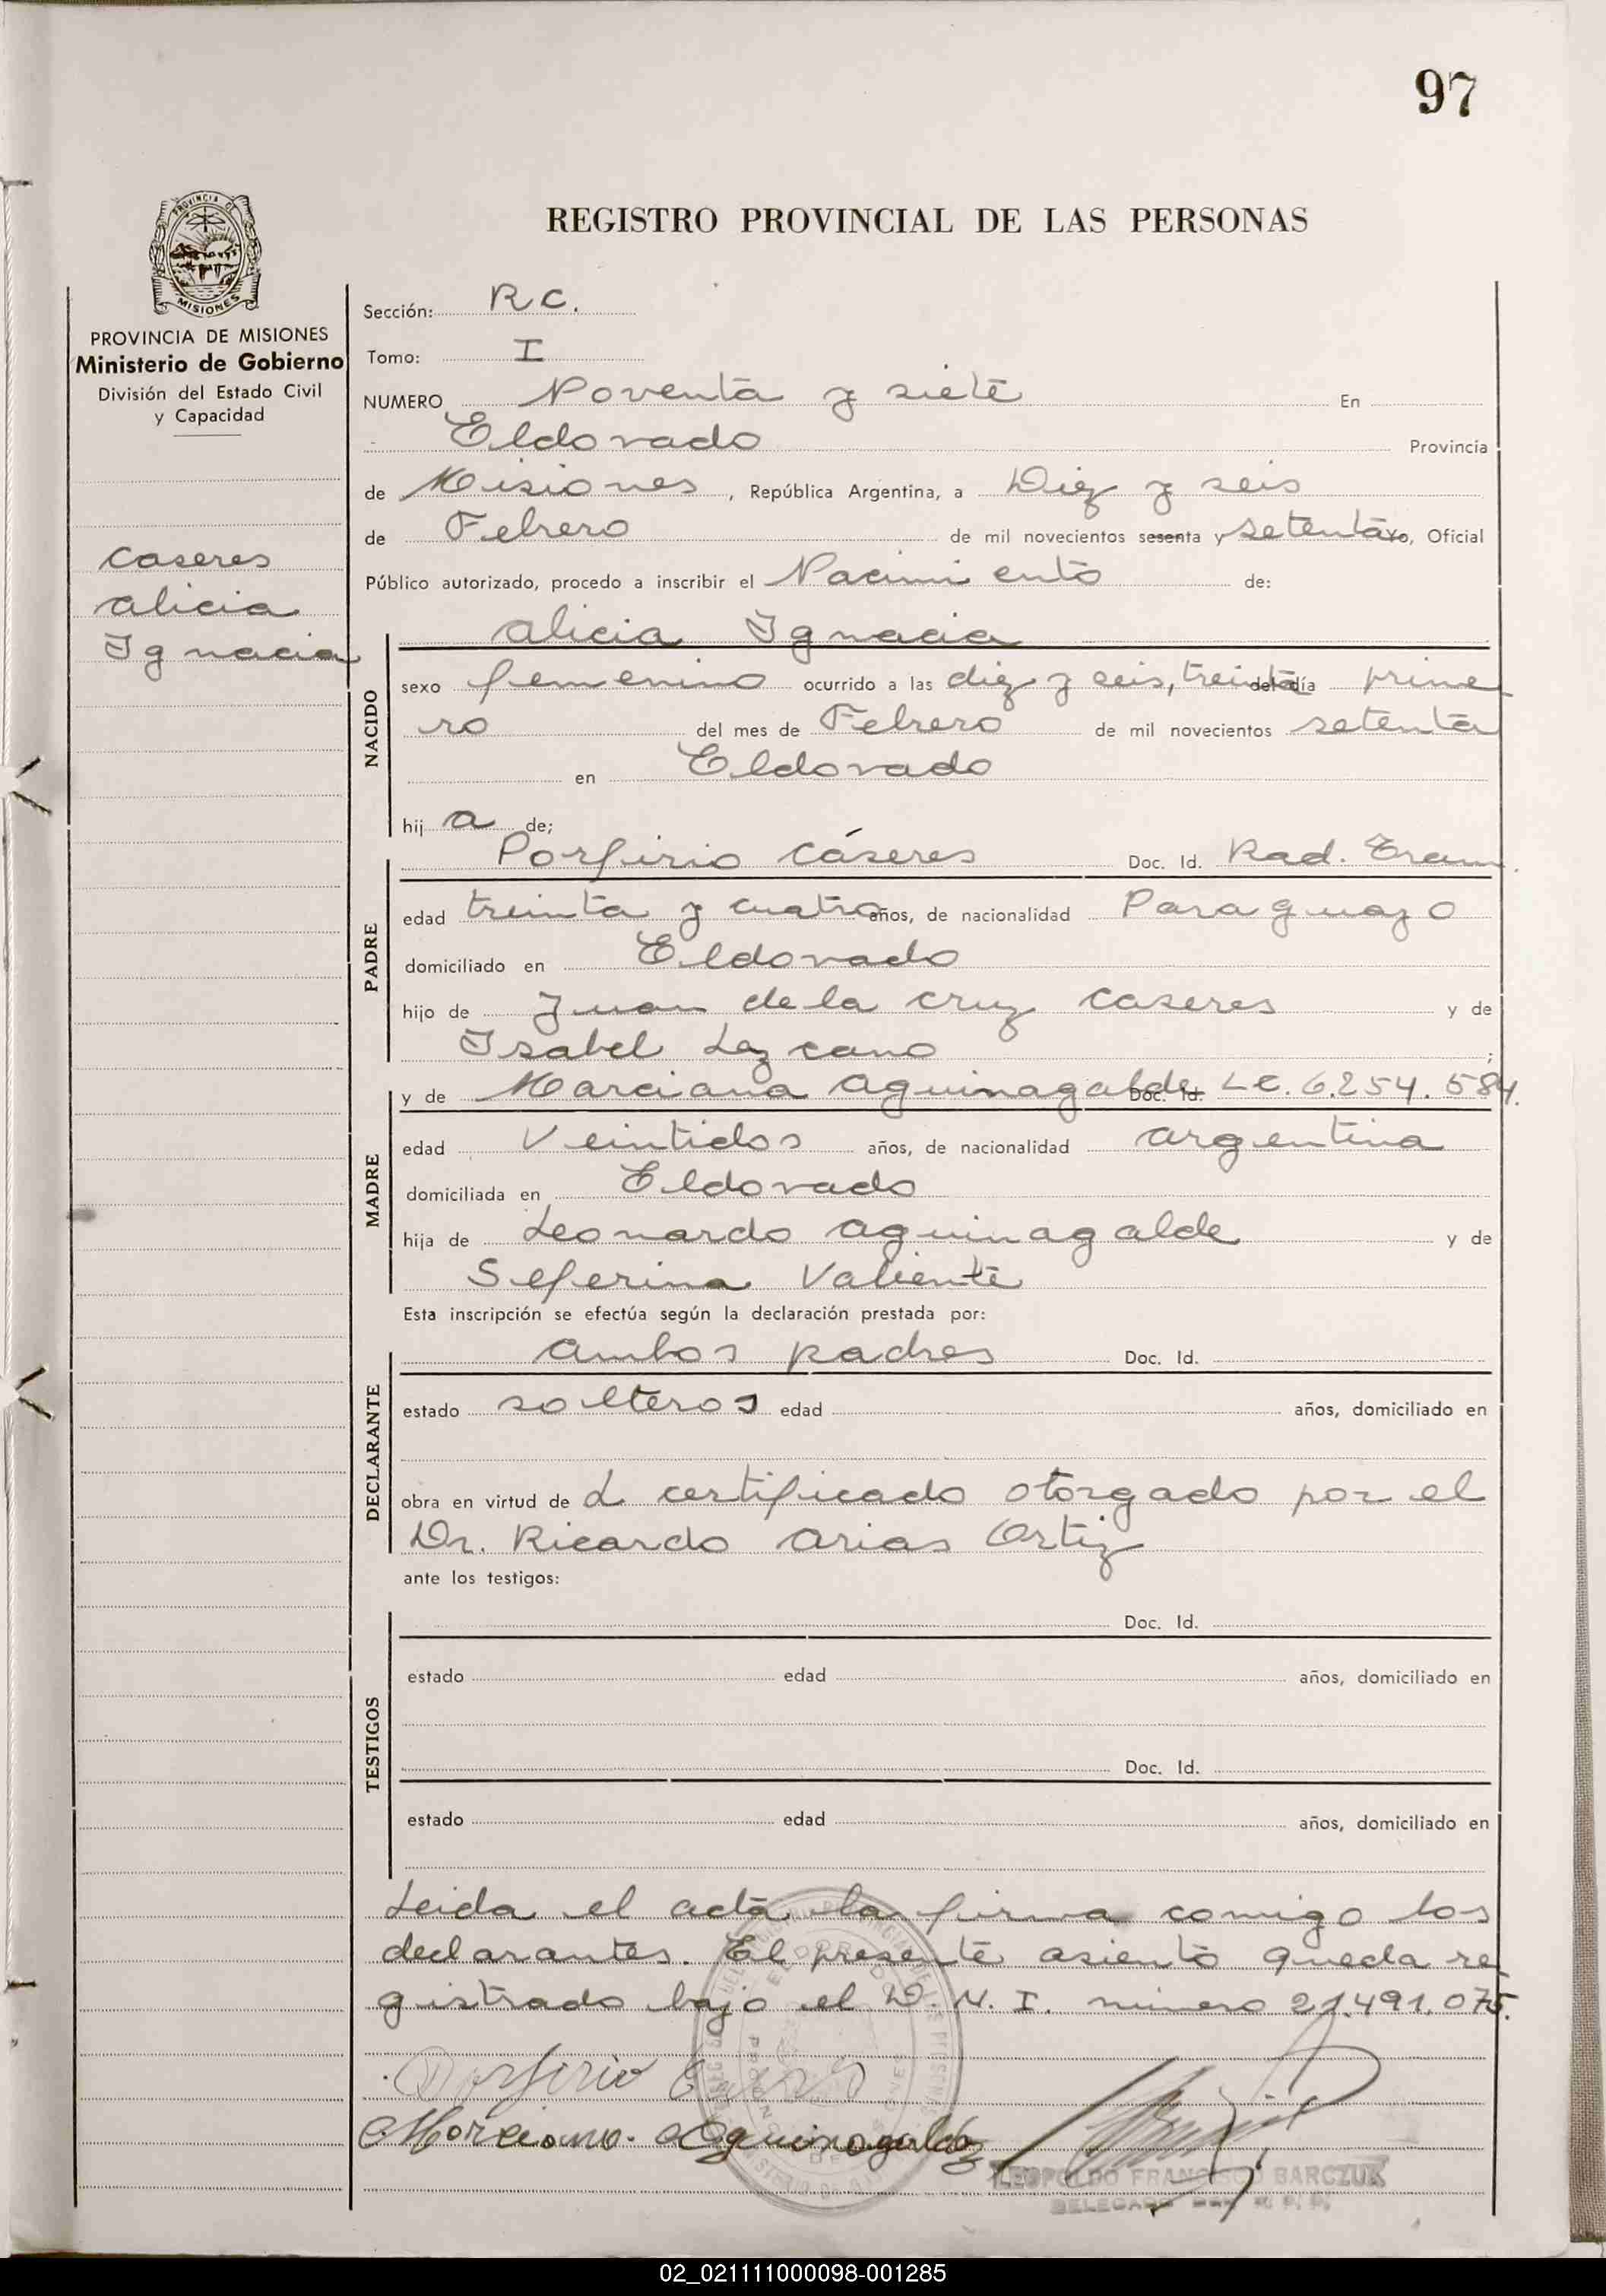 97
REGISTRO PROVINCIAL DE LAS PERSONAS
PROVINCIA DE MISIONES
Ministerio de Gobierno
División del Estado Civil
y Capacidad
Caseres
Alicia
Ignacia
Sección: R C.
Tomo: I
NUMERO Noventa y siete En
Eldorado Provincia
de Misiones, República Argentina, a Diez y seis
de Febrero de mil novecientos sesenta y setenta, Oficial
Público autorizado, procedo a inscribir el Nacimiento de:
NACIDO
Alicia Ignacia
sexo femenino ocurrido a las diez y seis, treinta del día prime
ro del mes de Febrero de mil novecientos setenta
en Eldorado
hij a de;
PADRE
Porfirio Cáseres Doc. Id. Rad. Tram.
edad treinta y cuatro años, de nacionalidad Paraguayo
domiciliado en Eldorado
hijo de Juan de la Cruz Caseres y de
Isabel Lezcano;
MADRE
y de Marciana Aguinagalde Doc. Id. L C. 6.254.584.
edad Veintidos años, de nacionalidad Argentina
domiciliada en Eldorado
hija de Leonardo Aguinagalde y de
Seferina Valiente
Esta inscripción se efectúa según la declaración prestada por:
DECLARANTE
Ambos padres Doc. Id.
estado solteros edad años, domiciliado en
obra en virtud de L certificado otorgado por el
Dr. Ricardo Arias Ortiz
ante los testigos:
TESTIGOS
Doc. Id.
estado edad años, domiciliado en
Doc. Id.
estado edad años, domiciliado en
Leida el acta la firma comigo los
declarantes. El presente asiento queda re
gistrado bajo el D. N. I. número 21.491.075.
Porferio
Morciano Aguinogalde
LEOPOLDO FRANCISCO BARCZUK
DELEGADO
02_021111000098-001285